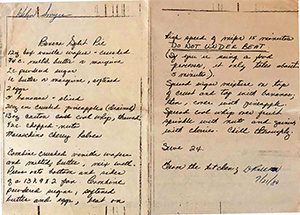 Banana Split Pie
12 oz box vanilla wafers - crushed
3/4 c. melted butter or margarine
2 c powdered sugar
1 c butter or margarine, softened
2 eggs
bananas - sliced
20 oz can crushed pineapple (drained)
13 oz carton cool whip, thawed
1 c chopped nuts
Maraschino cherry halves
Combine crushed vanilla wafers
and melted butter, mix well.
Press into bottom and sides
of a 13 x 9 x 2 pan. Combine
powdered sugar, softened
butter and eggs, beat on
high speed of mixer 15 minutes
DO NOT UNDER BEAT
(If you is using a food
processor, it only takes about
5 minutes).
Spread sugar mixture on top
of crust and top with banana,
then cover with pineapple.
Spread cool whip over fruit
sprinkle with nuts and garnish
with cherries. Chill thoroughly.
Serve 24.
Clean the kitchen,
7/21/84